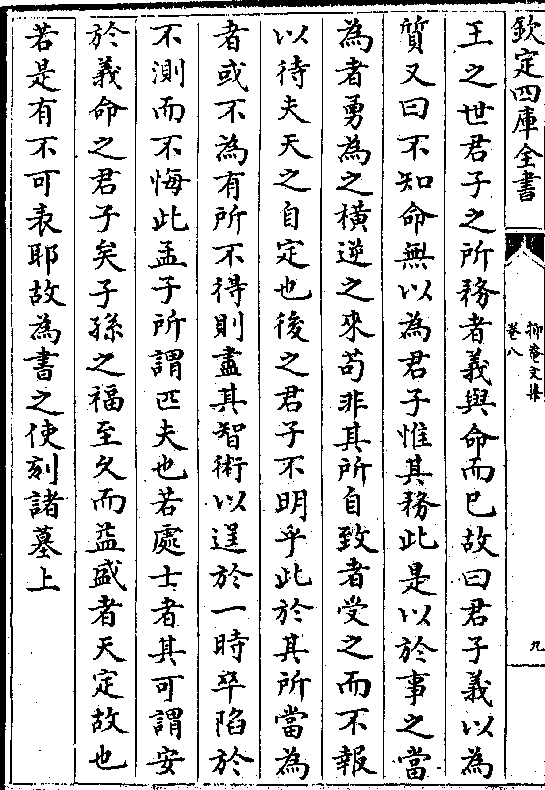 欽定四庫全書
抑菴文集
卷八
九
王之世君子之所務者義與命而已故曰君子義以為
質又曰不知命無以為君子惟其務此是以於事之當
為者勇為之橫逆之來苟非其所自致者受之而不報
以待夫天之自定也後之君子不明乎此於其所當為
者或不為有所不得則盡其智術以逞於一時卒陷於
不測而不悔此孟子所謂匹夫也若處士者其可謂安
於義命之君子矣子孫之福至久而益盛者天定故也
若是有不可表耶故為書之使刻諸墓上